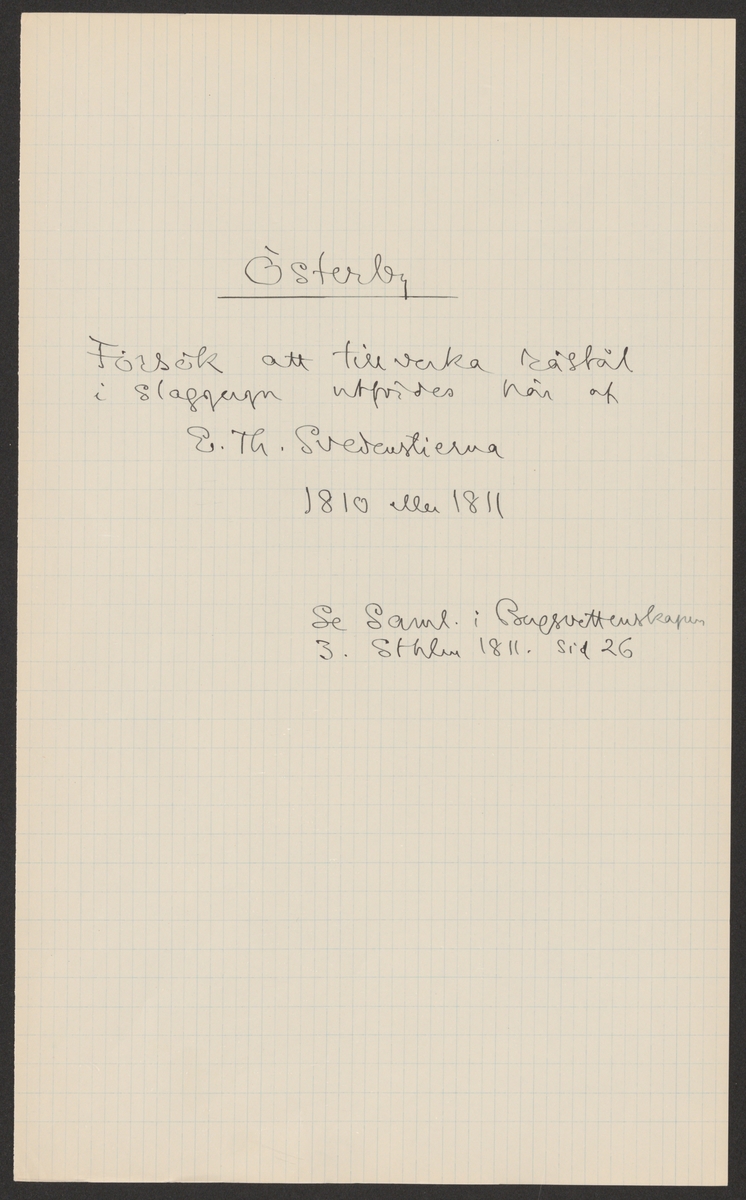 Österby
Försök att tillverka råstål
i slaggugn utfördes här af
E. Th. Svedenstierna
1810 eller 1811
Se Saml. i Bergsvettenskapen
3. Sthlm 1811. Sid 26